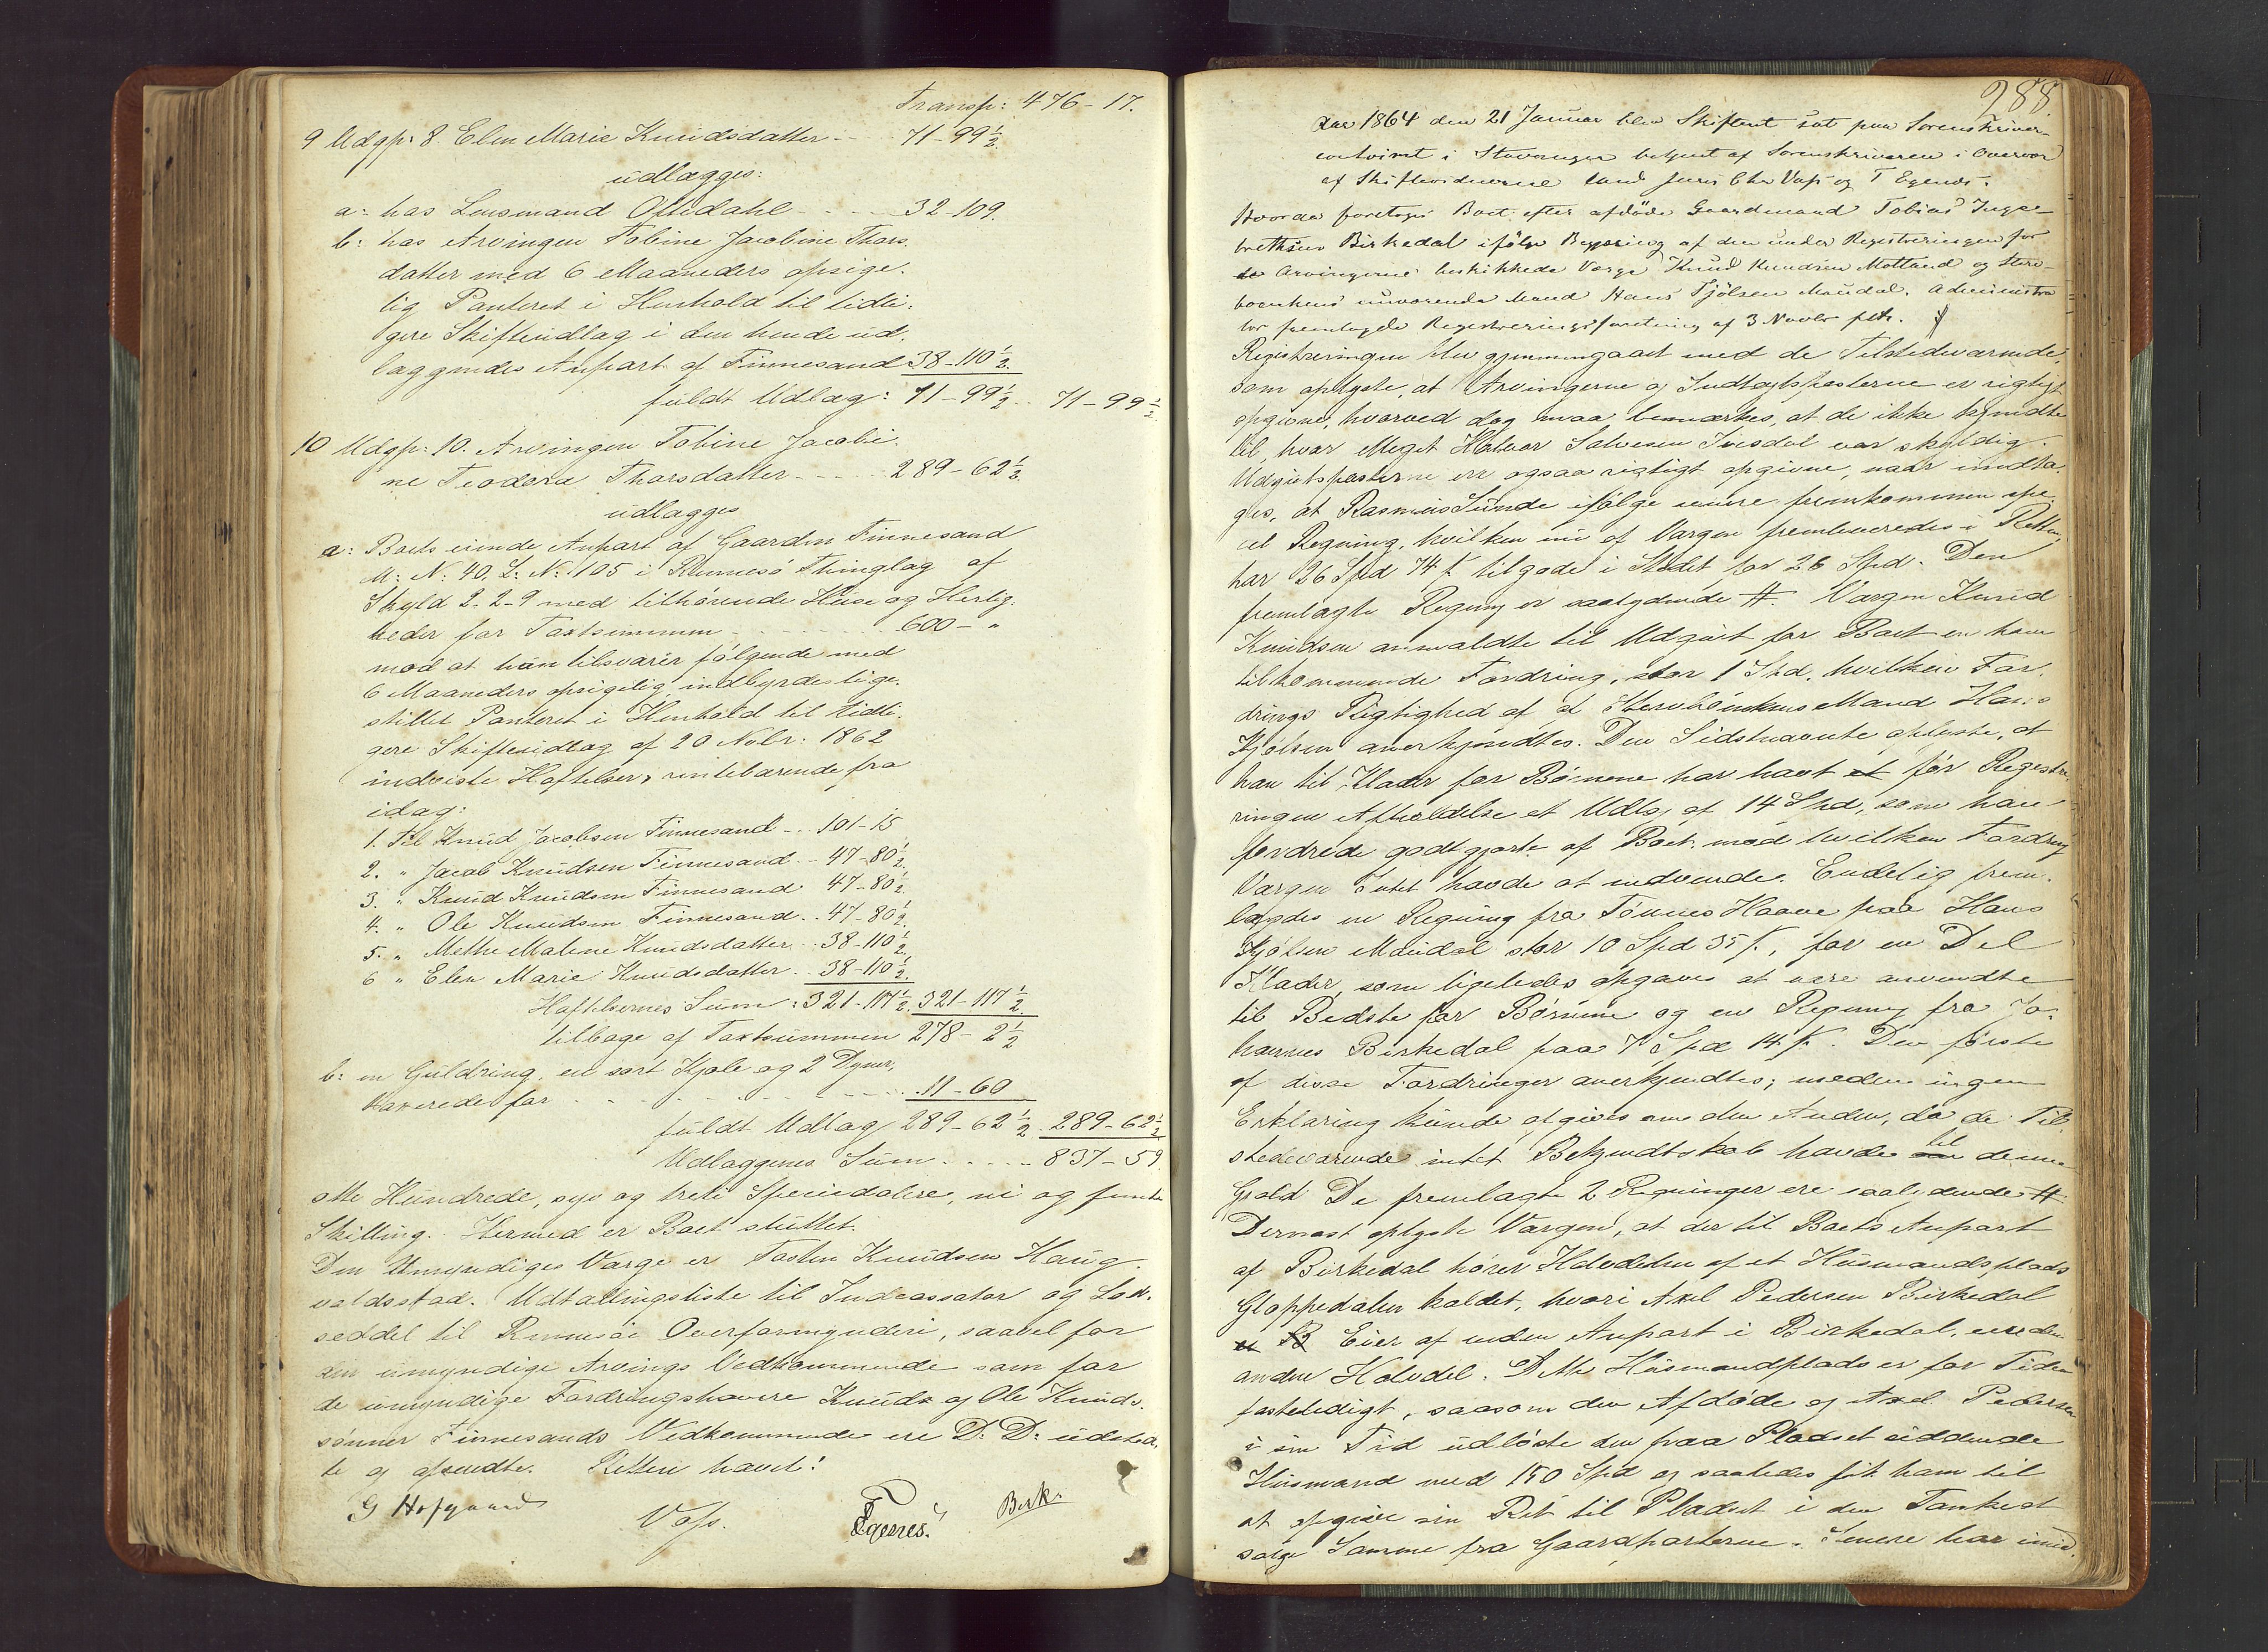 Transp: 476-17.
9 Udgp: 8. Elen Marie Knudsdatter - - 71-99½
udlægges:
a: hos Lensmand Oftedahl - - - 32-109.
b: hos Arvingen Tobine Jacobine Thors-
datter med 6 Maaneders opsige-
lig Panteret i Henhold til tidli-
gere Skifteudlæg i den hende ud-
læggendes Anpart af Finnesand 38-110½
fuldt Udlæg: 71-99½ - 71-99½
10 Udgp: 10. Arvingen Tobine Jacobi-
ne Teodora Thorsdatter - - - - 289-62½
udlægges
a: Boets eiende Anpart af Gaarden Finnesand
M: N: 40. L: N: 105 i Rennesø Thinglag af
Skyld 2-2-9 med tilhørende Huse og Herlig-
heder for Taxtsummen - - - - - 600 - "
mod at hun tilsvarer følgende med
6 Maaneders opsigelig, indbyrdes lige-
stillet Panteret i Henhold til tidli-
gere Skifteudlæg af 20 Novbr: 1862
indviste Hæftelser, rentebærende fra
idag:
1. Til Knud Jacobsen Finnesand - - 101-15
2. " Jacob Knudsen Finnesand - - 47-80½
3. " Knud Knudsen Finnesand 47-80½
4. " Ole Knudsen Finnesand - - 47-80½
5. " Methe Malene Knudsdatter - - 38-110½
6 " Elen Marie Knudsdatter - - 38-110½
Hæftelsernes Sum: 321-117½ 321-117½
tilbage af Taxtsummen 278-2½
b: en Guldring, en sort Kjole og 2 Dyner,
taxerede for - - - - - - - - 11-60
fuldt Udlæg 289-62½ 289-62½
Udlæggenes Sum - - - - - 837-59
otte Hundrede, syv og treti Speciedalere, ni og femti
Skilling. Hermed er Boet sluttet.
Den Umyndiges Værge er Tosten Knudsen Haug-
valdsstad. Udtallingsliste til Indcassator og Lod-
seddel til Rennesøe Overformynderi, saavel for
den umyndige Arvings Vedkommende som for
de umyndige Fordringshavere Knuds og Ole Knuds-
sønner Finnesands Vedkommende ere D: D: udsted-
te og afsendte. Retten hævet!
G Hofgaard Voss. T Egenes. Besk.
288
Aar 1864 den 21 Januar blev Skifteret sat paa Sorenskriver-
contoiret i Stavanger betjent af Sorenskriveren i Overvær
af Skiftevidnerne Cand juris Chr Voss og T Egenes.
Hvorda foretoges Boet efter afdøde Gaardmand Tobias Inge-
brethsen Birkedal ifølge Begjæring af den under Registreringen for
de Arvingerne beskikkede Værge Knud Knudsen Motland og Sterv-
boenkens nuværende Mand Hans Kjølsen Maudal. Administra
tor fremlagde Registreringsforretning af 3 Novbr f.A.
Registreringen blev gjennemgaaet med de Tilstedeværende,
som oplyste, at Arvingerne og Indtægtsposterne er rigtigt
opgivne, hvorved dog maa bemærkes, at de ikke kjendte
til, hvor Meget Halvor Salvesen Ivesdal var skyldig.
Udgiftsposterne ere ogsaa rigtigt opgivne, naar undta-
ges, at Rasmus Sunde ifølge senere fremkommen spe-
cel Regning, hvilken nu af Værgen fremleveredes i Retten,
har 26 Spd 74 s tilgode i Stedet for 26 Spd. Den
fremlagte Regning er saalydende #. Værgen Knud
Knudsen anmeldte til Udgift for Boet en ham
tilkommende Fordring, stor 1 Spd, hvilken For-
drings Rigtighed af Stervboenkens Mand Hans
Kjølsen anerkjendtes. Den Sidstnævnte oplyste, at
han til Klæder for Børnene har havt før Registre-
ringens Afholdelse et Udlæg af 14 Spd, som han
fordrede godtgjort af Boet mod hvilken Fordring
Værgen Intet havde at indvende. Endelig frem-
lagdes en Regning fra Tønnes Haave paa Hans
Kjølsen Maudal stor 10 Spd 35 s, for en Del
Klæder, som ligeledes opgaves at være anvendte
til Bedste for Børnene og en Regning fra Jo-
hannes Birkedal paa 7 Spd 14 s. Den første
af disse Fordringer anerkjendtes; medens ingen
Erklæring kunde afgives om den Anden, da de Til-
stedeværende intet Bekjendtskab havde til denne
Gjæld De fremlagte 2 Regninger ere saalydende #
Dernæst oplyste Værgen, at der til Boets Anpart
af Birkedal hører Halvdelen af et Husmandsplads
Gloppedalen kaldet, hvori Axel Pedersen Birkedal
Eier af anden Anpart i Birkedal, eier den
anden Halvdel. Dette Husmandplads er for Tiden
fæsteledigt, saasom den Afdøde og Axel Pedersen
i sin Tid udløste den paa Pladset siddende
Husmand med 150 Spd og saaledes fik ham til
at opgive sin Ret til Pladset i den Tanke at
sælge Samme fra Gaardparterne. Senere har imid-